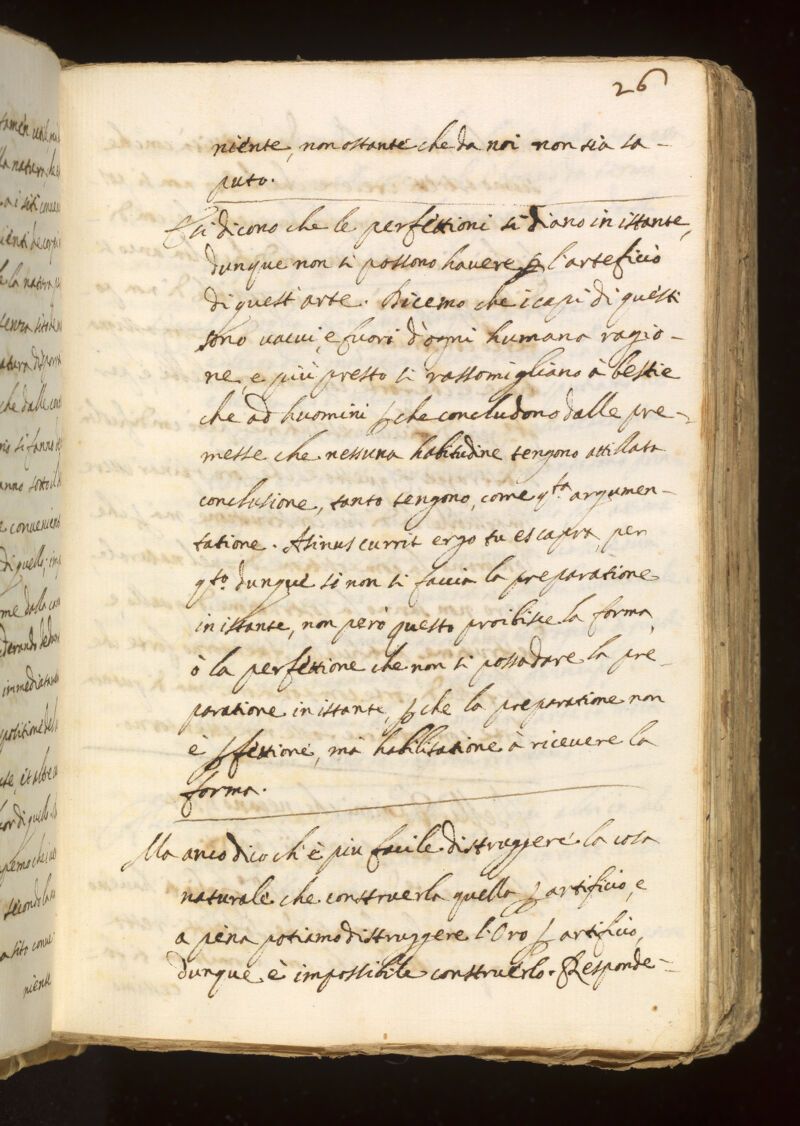 26
niente, non ostante che da noi non sia sa-
puto.
Essi dicono che le perfettioni si diano in istante,
dunque non si possono havere ꝑ l'arteficio
di quest'arte. Dicemo che i capi di questi
sono vacui, e fuori d'ogni humana ragio-
ne, e più presto si rassomigliano à bestie
che ad huomini ꝑche concludono dalle pre-
messe che nessuna habitudine tengono attillata
conclusione, tanto tengono, come q.ta argumen-
tatione. Asinus currit ergo tu es capra, per
q.to dunque se non si faccia la preparatione
in istante, non però questo proibisce la forma,
ò la perfettione che non si possa dare la pre-
paratione in istante, ꝑche la preparatione non
è ꝑfettione, mà habilitatione à ricevere la
forma.
Ma anco dico ch'è piu facile distruggere la cosa
naturale che construerla quella ꝑ artificio, e
a pena potiamo distruggere l'Oro ꝑ artificio,
dunque è impossibile construerlo. Risponde-
niente